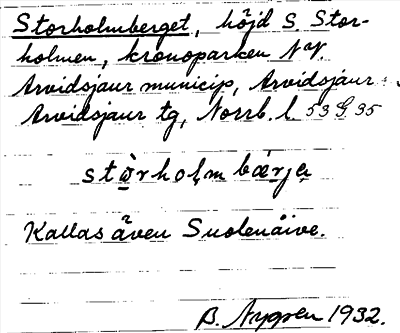 Storholmberget, höjd S. Stor-
holmen, kronoparken NV.
Arvidsjaur municip, Arvidsjaur
Arvidsjaur tg, Norrb. l. 53 G 35
stòrholmbærje
Kallas även Suolenåive.
B. Nygren 1932.